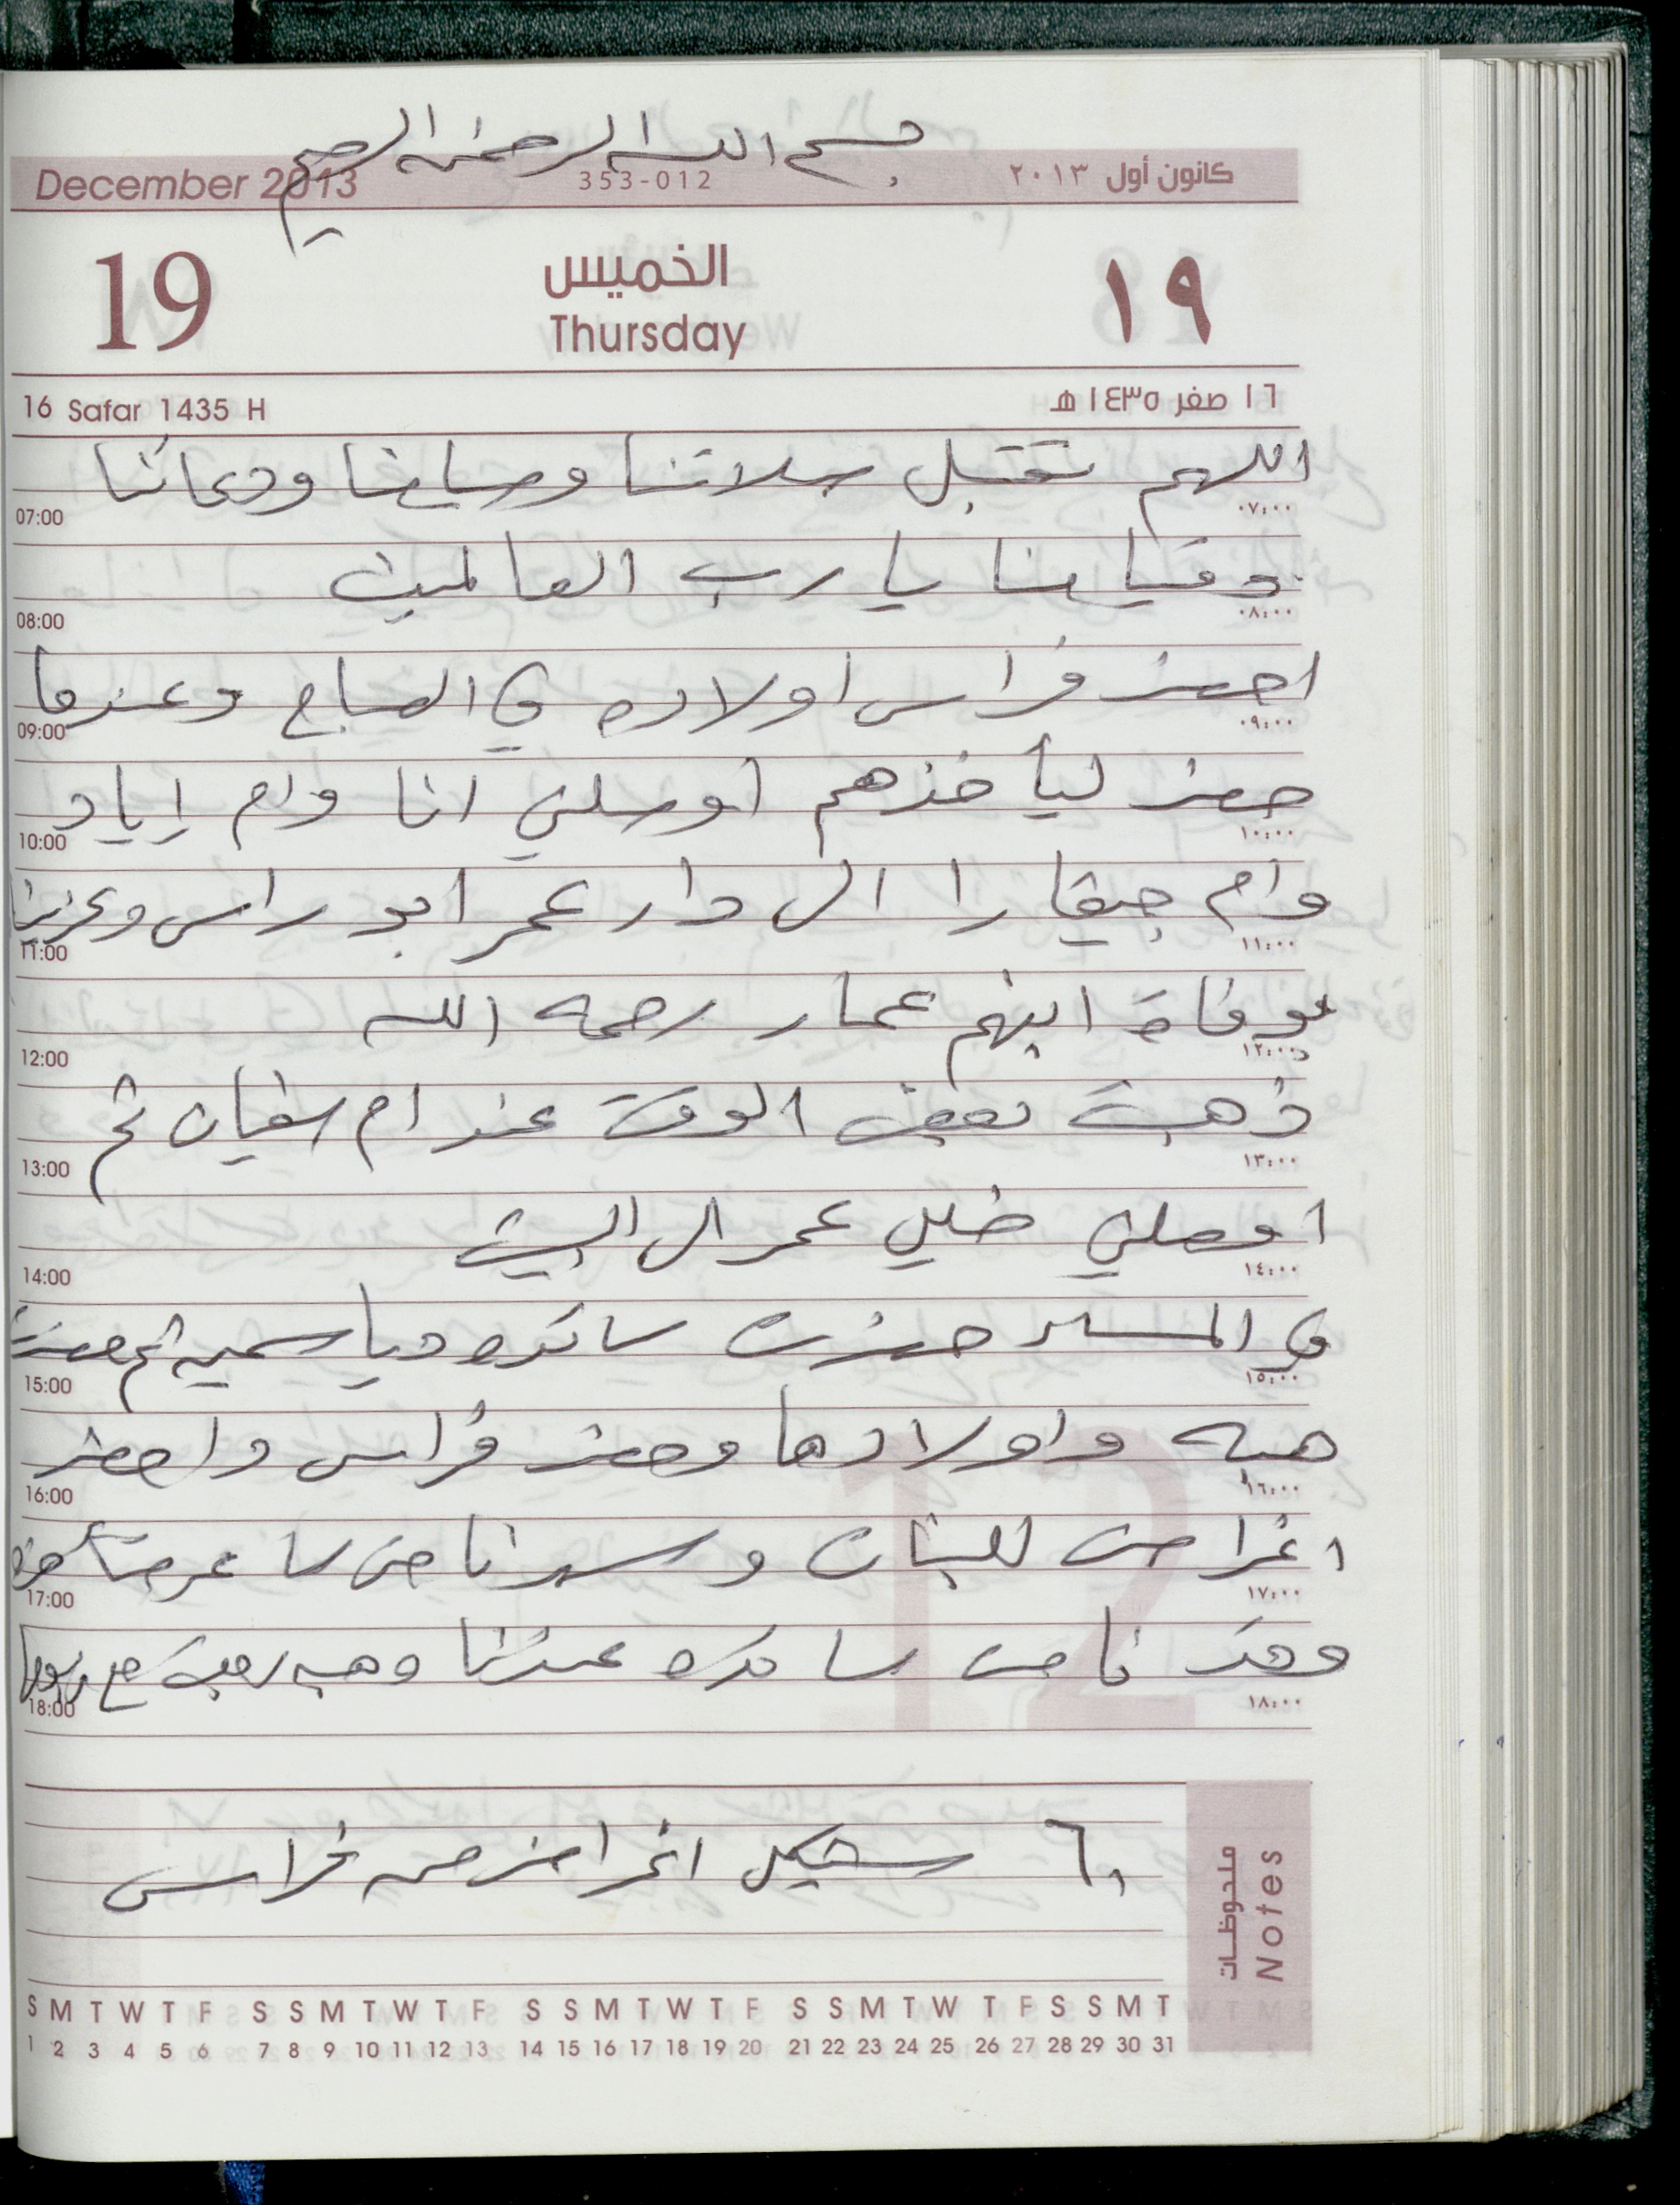 بسم الله الرحمن الرحيم
December 2013 353-012 كانون أول ٢٠١٣
19 الخميس ١٩
Thursday
16 Safar 1435 H ١٦ صفر ١٤٣٥ هـ
اللهم تقبل صلاتنا وصيامنا ودعائنا
07:00 ٠٧:٠٠
وقيامنا يا رب العالمين
08:00 ٠٨:٠٠
احضر فراس اولاده في الصباح وعندما
09:00 ٠٩:٠٠
حضر ليأخذهم أوصلني انا وام إياد
10:00 ١٠:٠٠
وام جيفارا الى دار عمر ابو راس وعزينا
11:00 ١١:٠٠
بوفاة ابنهم عمار رحمه الله
12:00 ١٢:٠٠
ذهبت بعض الوقت عند ام سفيان ثم
13:00 ١٣:٠٠
اوصلني خليل عمر الى البيت
14:00 ١٤:٠٠
في المساء حضرت ساندره وياسميه ثم حضرت
15:00 ١٥:٠٠
هبه واولادها وحضر فراس واحضر
16:00 ١٦:٠٠
اغراض للبنات وسهرنا حتى ساعه متأخره
17:00 ١٧:٠٠
وقد نامت ساندره عندنا وهبه روحت مع
18:00 ١٨:٠٠
٦٠ شيكل اغراض من فراس
ملحوظات
Notes
S M T W T F S S M T W T F S S M T W T F S S M T W T F S S M T
1 2 3 4 5 6 7 8 9 10 11 12 13 14 15 16 17 18 19 20 21 22 23 24 25 26 27 28 29 30 31